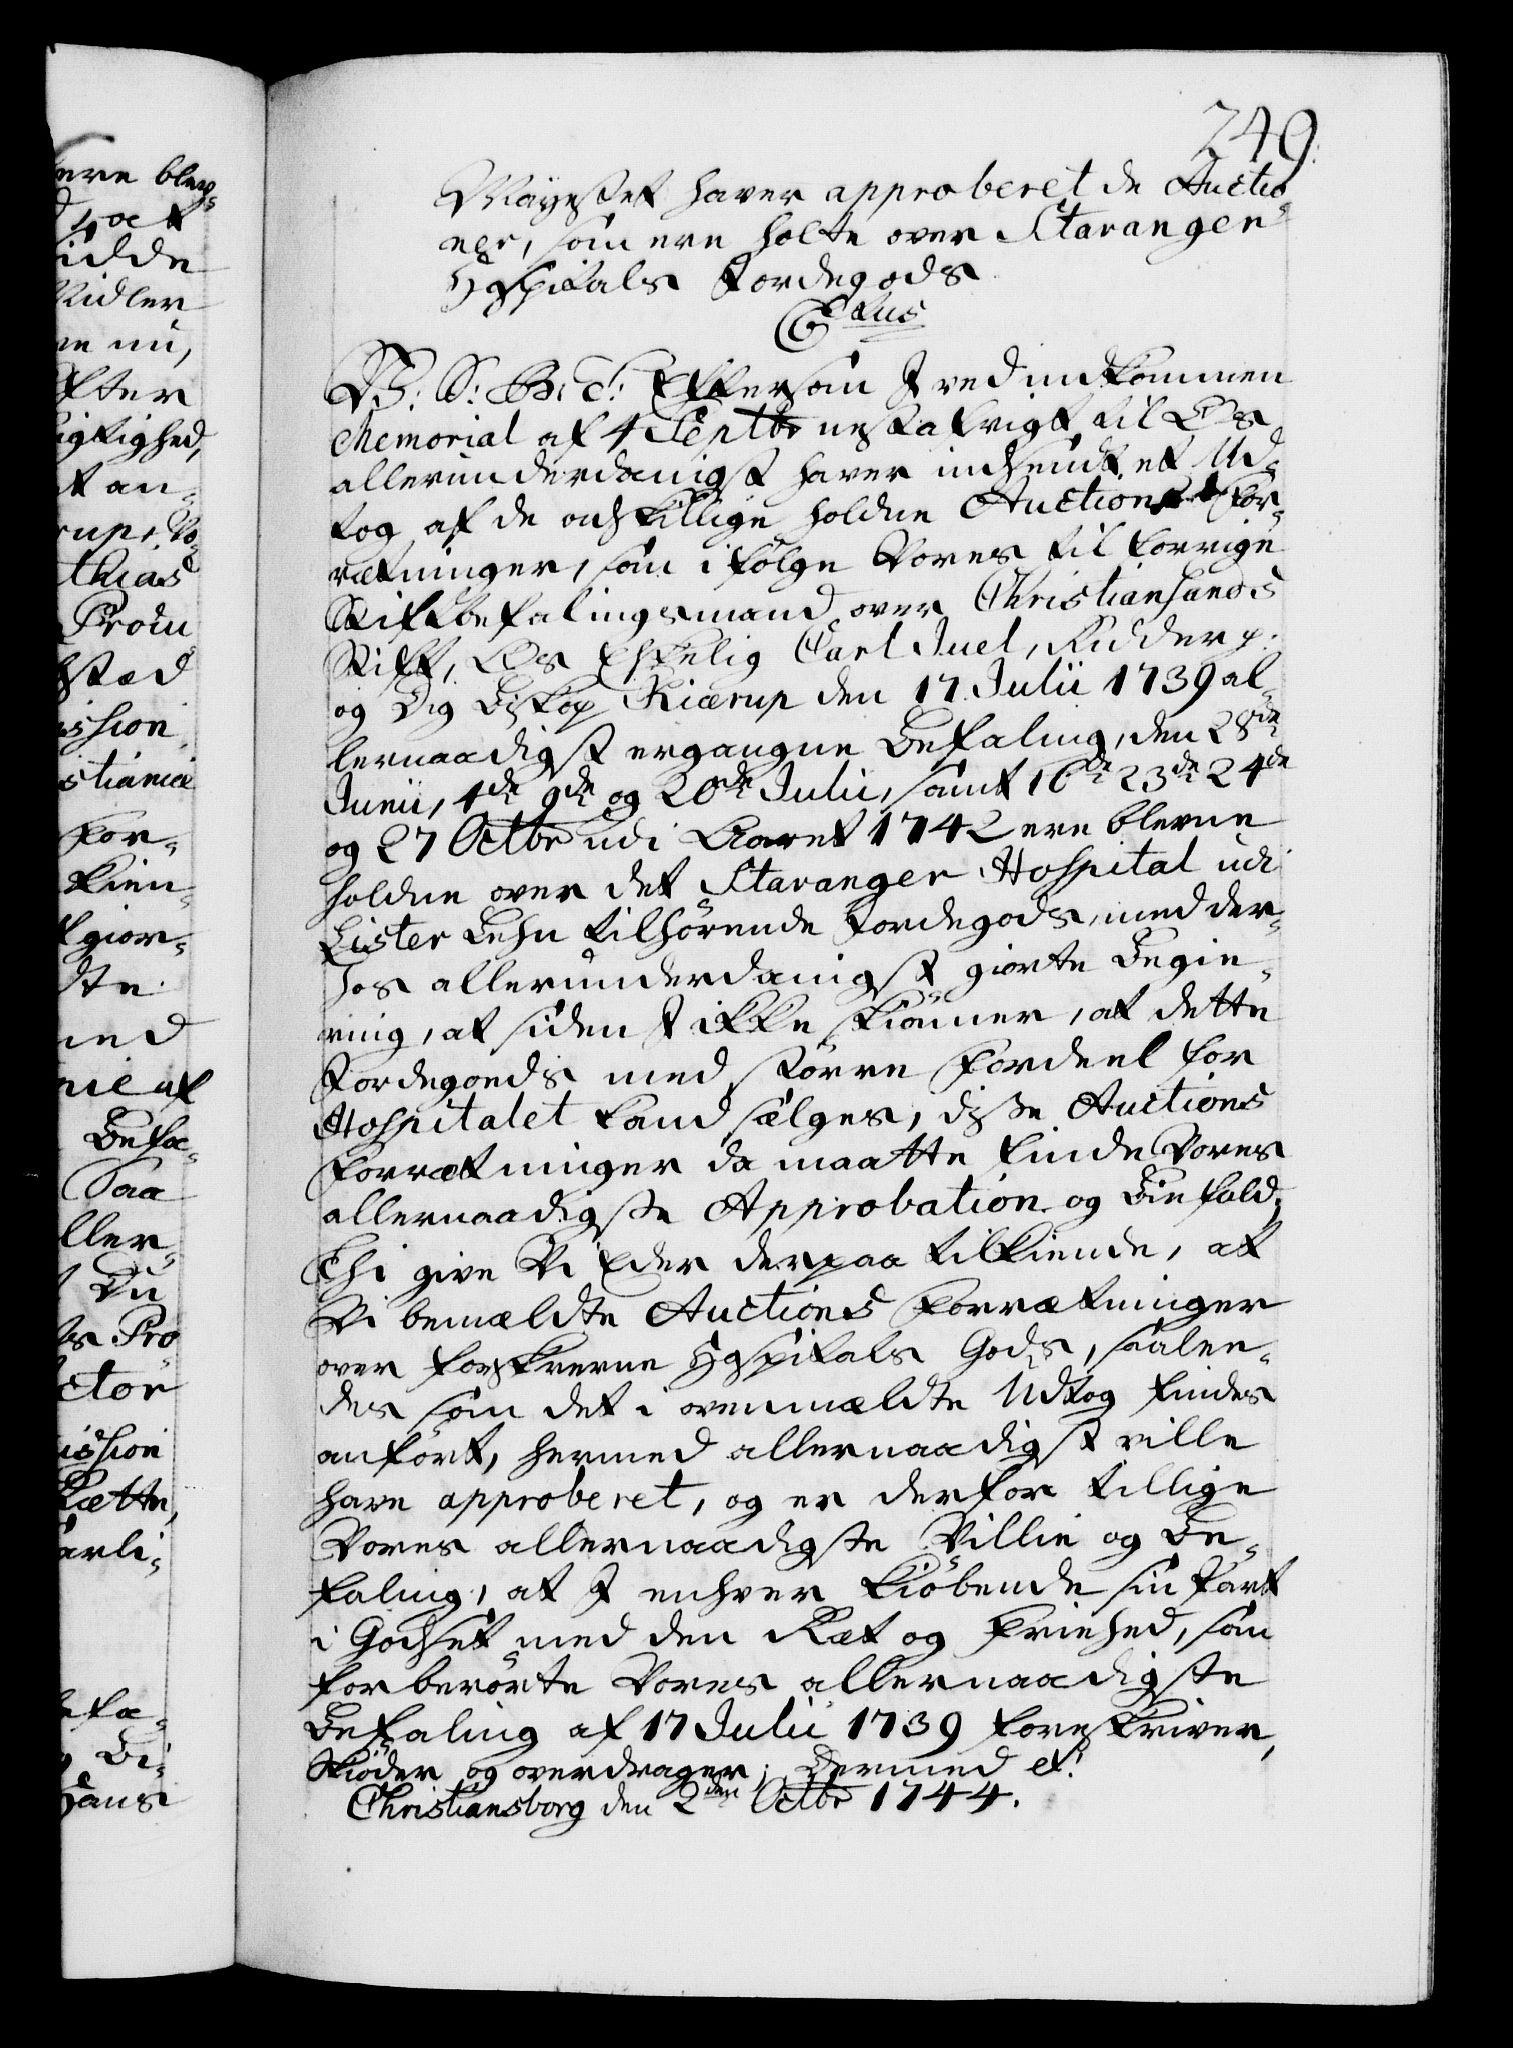 249.
Mayestet haver approberet de Auctio-
ner, som ere holte over Stavanger
Hospitals Jordegods
C 6tus
V: S: B: T: Eftersom I ved indkommen
Memorial af 4 Septbr nestafvigt til Os
allerunderdanigst haver indsendt et Ud-
tog af de adskillige holdne Auctions For-
retninger, som i følge Vores til forrige
Stiftbefalingsmand over Christiansands
Stift, Os Elskelig Carl Juel, Ridder p:
og Dig Biskop Kiærup den 17 Julii 1739 al-
lernaadigst ergangne Befaling, den 28de
Junii, 4de 9de og 20de Julii, samt 16de 23de 24de
og 27 Octbr udi Aaret 1742 ere blevne
holdne over det Stavanger Hospital udi
Lister Lehn tilhørende Jordegods, med der-
hos allerunderdanigst giorte Begie-
ring, at siden I ikke skiønner, at dette
Jordegoeds med større Fordeel for
Hospitalet kand sælges, disse Auctions
Forrætninger da maatte finde Vores
allernaadigste Approbation og Biefald;
Thi give Vi Eder derpaa tilkiende, at
Vi bemældte Auctions Forrætninger
over forskrevne Hospitals Gods, saalee-
des som det i ovenmældte Udtog findes
anført, hermed allernaadigst ville
have approberet, og er derfor tillige
Vores allernaadigste Villie og Be-
faling, at I enhver kiøbende sin Part
i Godset med den Ræt og Friehed, som
forberørte Vores allernaadigste
Befaling af 17 Julii 1739 foreskriver,
skiøder og overdrager; Dermed etc:
Christiansborg den 2den Octbr 1744.